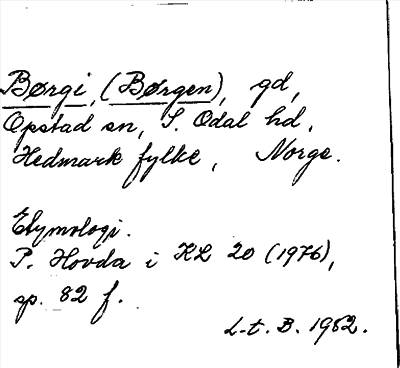 Børgi, (Børgen), gd,
Opstad sn, S. Odal hd,
Hedmark fylke, Norge.
Etymologi.
P. Hovda i KL 20 (1976),
sp. 82 f.
L-t. B. 1982.